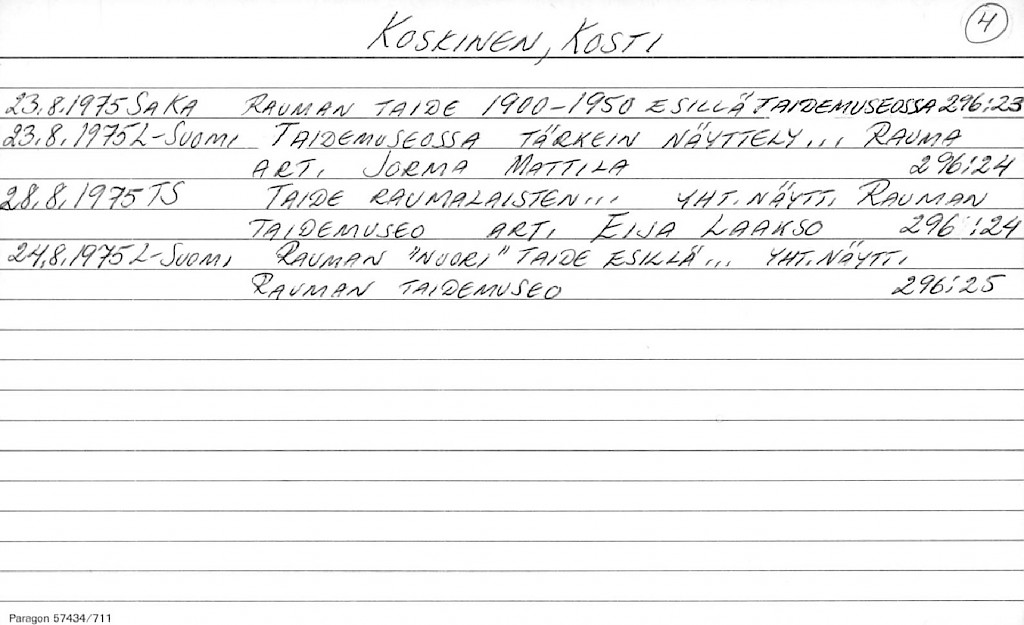 KOSKINEN, KOSTI
4
23.8.1975 SAKA RAUMAN TAIDE 1900-1950 ESILLÄ TAIDEMUSEOSSA 296:23
23.8.1975 L-SUOMI TAIDEMUSEOSSA TÄRKEIN NÄYTTELY... RAUMA
ART. JORMA MATTILA 296:24
28.8.1975 TS TAIDE RAUMALAISTEN... YHT.NÄYTT. RAUMAN
TAIDEMUSEO ART. EIJA LAAKSO 296:24
24.8.1975 L-SUOMI RAUMAN "NUORI" TAIDE ESILLÄ... YHT.NÄYTT.
RAUMAN TAIDEMUSEO 296:25
Paragon 57434/711